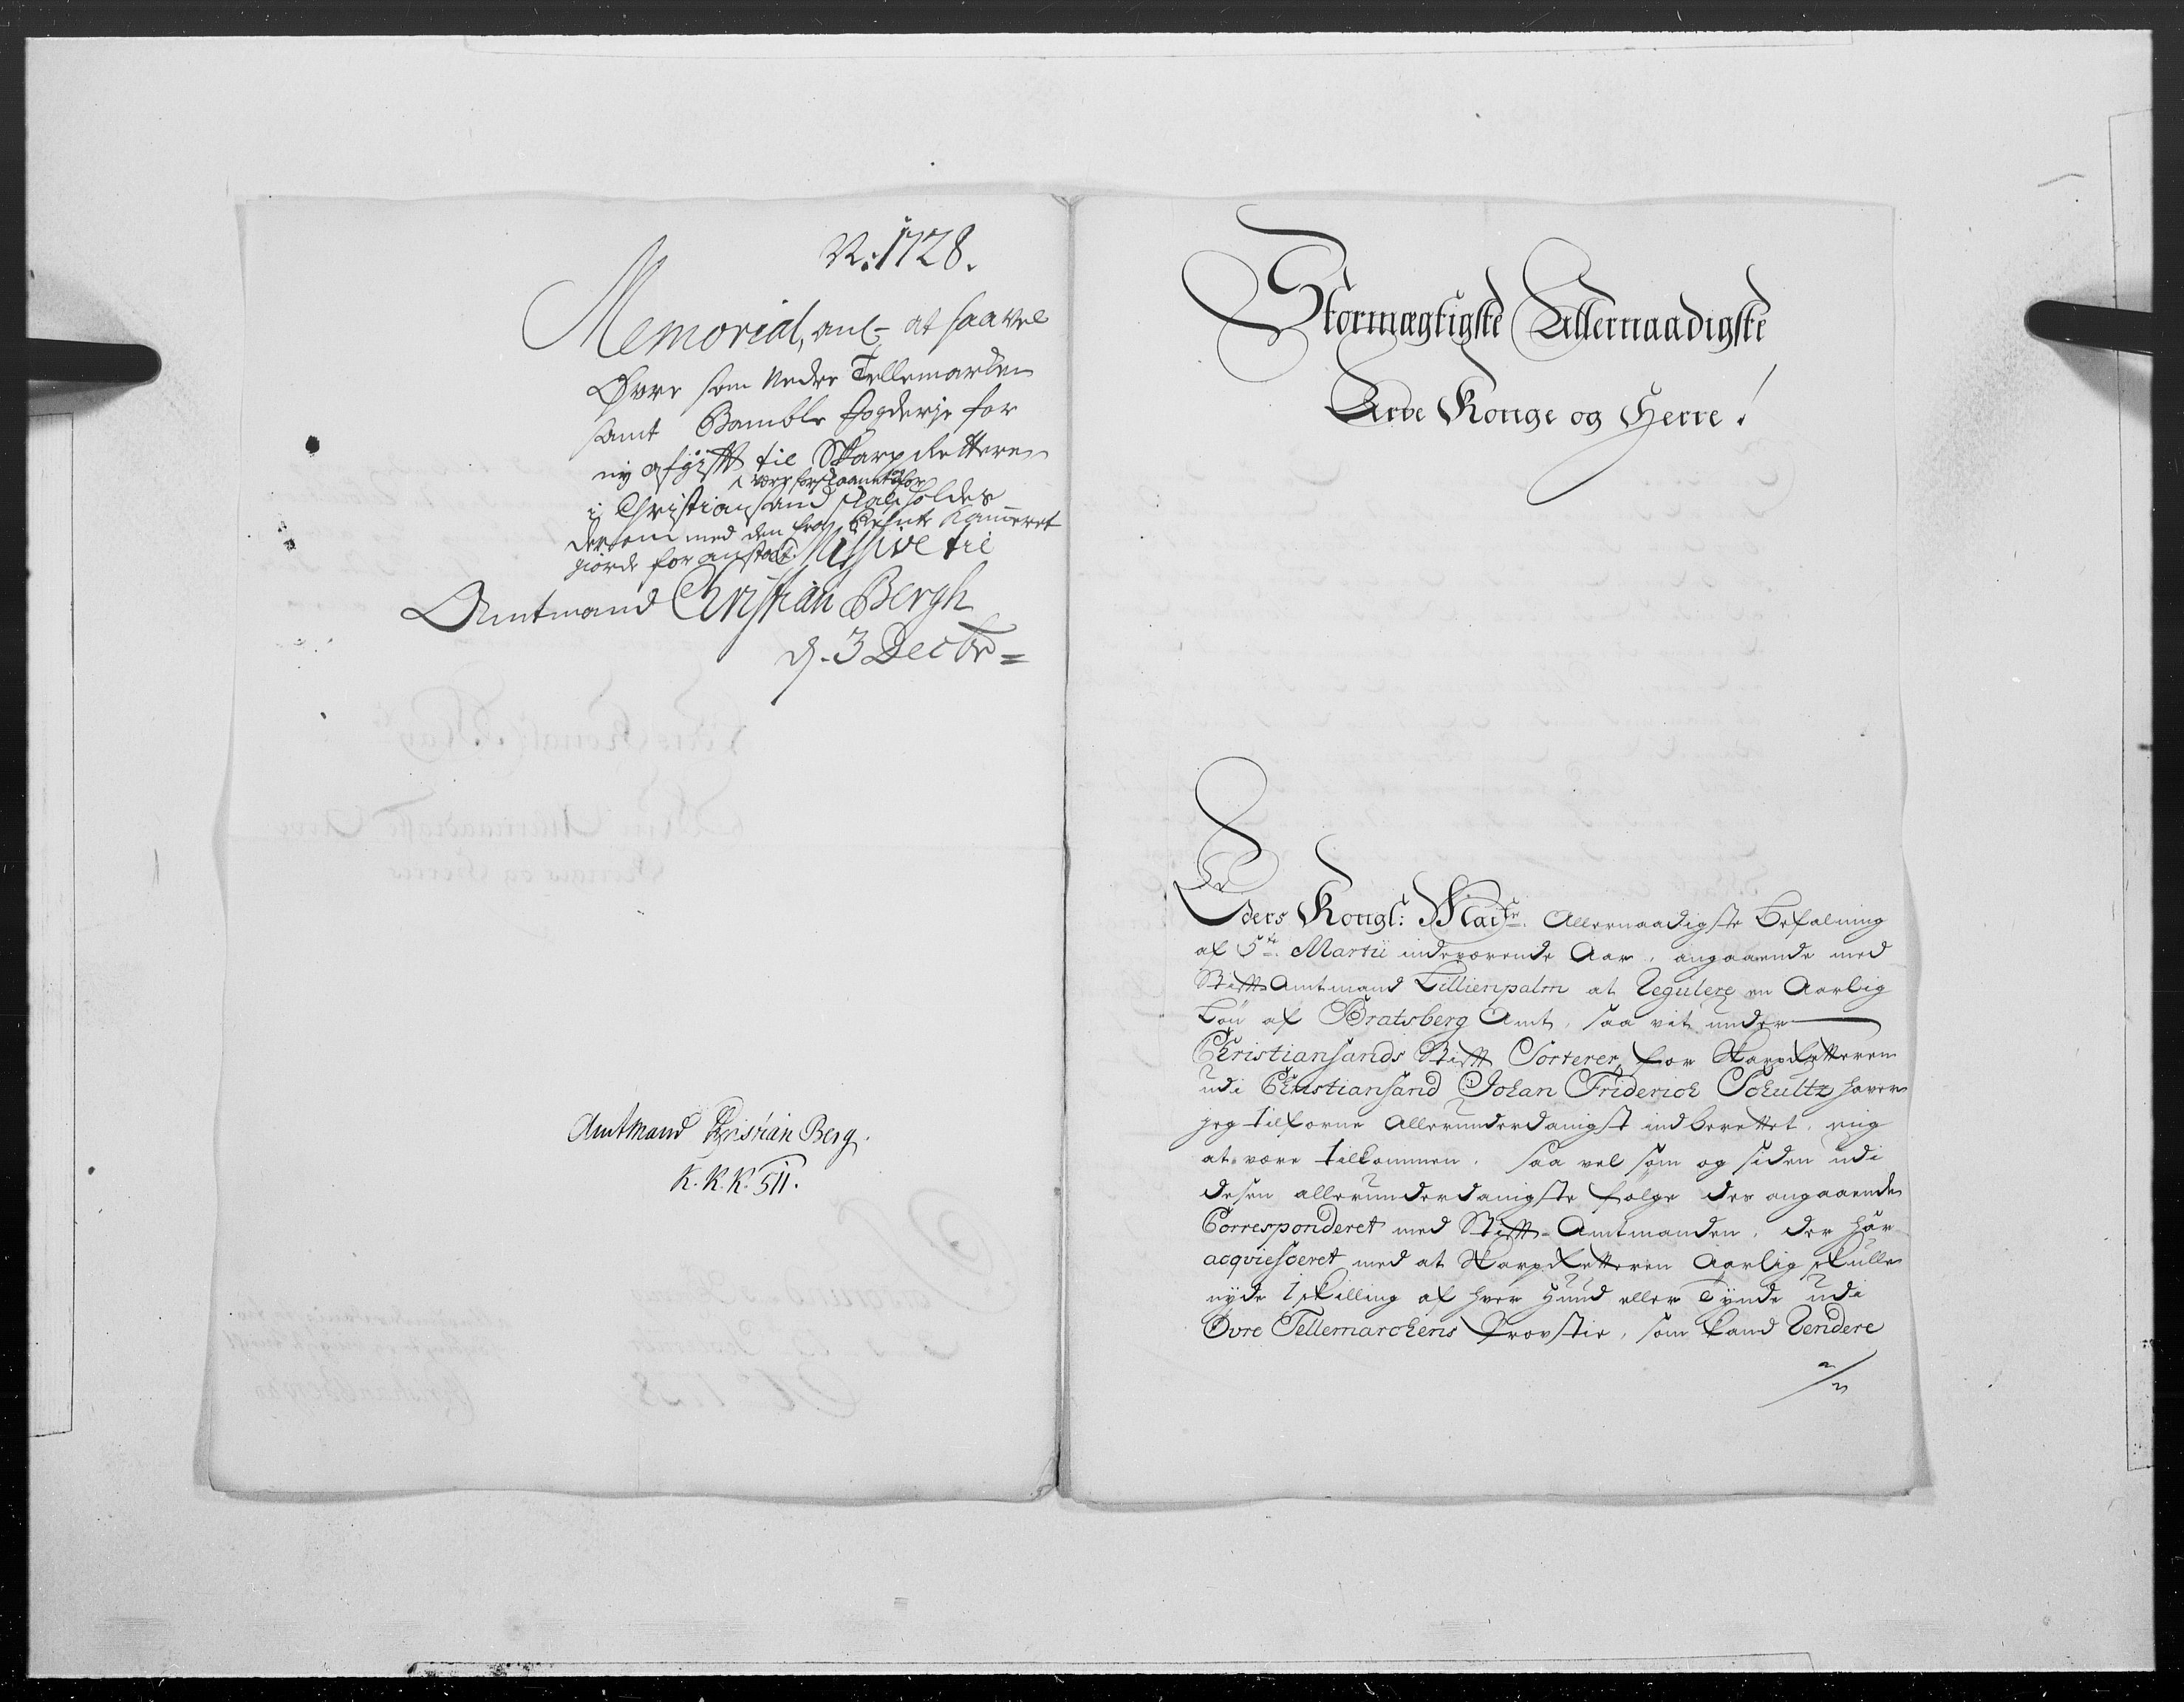 No. 1728.
Memorial, anl: at saavel
Øvre som Nedre Tellemarken
samt Bamble fogderje for
ny afgift til Skarp Retteren
i Christiansand
dersom med den fra Rente Kammeret
giorde for anstalt. Missive til
Amtmand Christian Bergh
d. 3 Decbr =
Amtmand Christian Berg.
K. K. K. 511.
Stormægtigste Allernaadigste
Arve Konge og Herre!
Eders Kongl: Maits. Allernaadigste Befalning
af 5te. Martii indeværende Aar, angaaende med
Stifts Amtmand Lillienpalm at Regulere en Aarlig
Løn af Bratsberg Amt, saa vit under
Christiansands Stift Sorterer, for Skarp Retteren
udi Christiansand Johan Friderich Schultz haver
jeg tilforne Allerunderdanigst indberettet, mig
at være tilkommen. saa vel som og siden udi
desen allerunderdanigste følge des angaaende
Corresponderet med Stift-Amtmanden, der har
acqviesceret med at Skarp Retteren Aarlig skulle
nyde 1 skilling af hver Huud eller Tynde udi
Øvre Tellemarchens Provstie, som kand Rendere